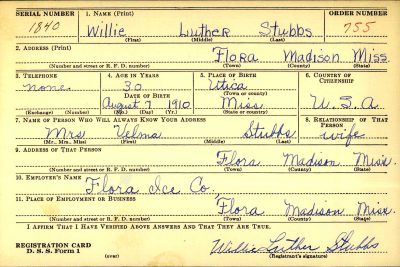 SERIAL NUMBER 1. NAME (Print) ORDER NUMBER
1840 Willie Luther Stubbs 755
(First) (Middle) (Last)
2. ADDRESS (Print)
Flora Madison Miss.
(Number and street or R. F. D. number) (Town) (County) (State)
3. TELEPHONE 4. AGE IN YEARS 5. PLACE OF BIRTH 6. COUNTRY OF
CITIZENSHIP
none. 30 Utica
DATE OF BIRTH (Town or county)
August 7 1910 Miss U.S.A
(Exchange) (Number) (Mo.) (Day) (Yr.) (State or country)
7. NAME OF PERSON WHO WILL ALWAYS KNOW YOUR ADDRESS 8. RELATIONSHIP OF THAT
PERSON
Mrs Velma Stubbs wife
(Mr., Mrs., Miss) (First) (Middle) (Last)
9. ADDRESS OF THAT PERSON
Flora Madison Miss.
(Number and street or R. F. D. number) (Town) (County) (State)
10. EMPLOYER'S NAME
Flora Ice Co.
11. PLACE OF EMPLOYMENT OR BUSINESS
Flora Madison Miss.
(Number and street or R. F. D. number) (Town) (County) (State)
I AFFIRM THAT I HAVE VERIFIED ABOVE ANSWERS AND THAT THEY ARE TRUE.
REGISTRATION CARD Willie Luther Stubbs
D. S. S. Form 1 (over) (Registrant's signature)